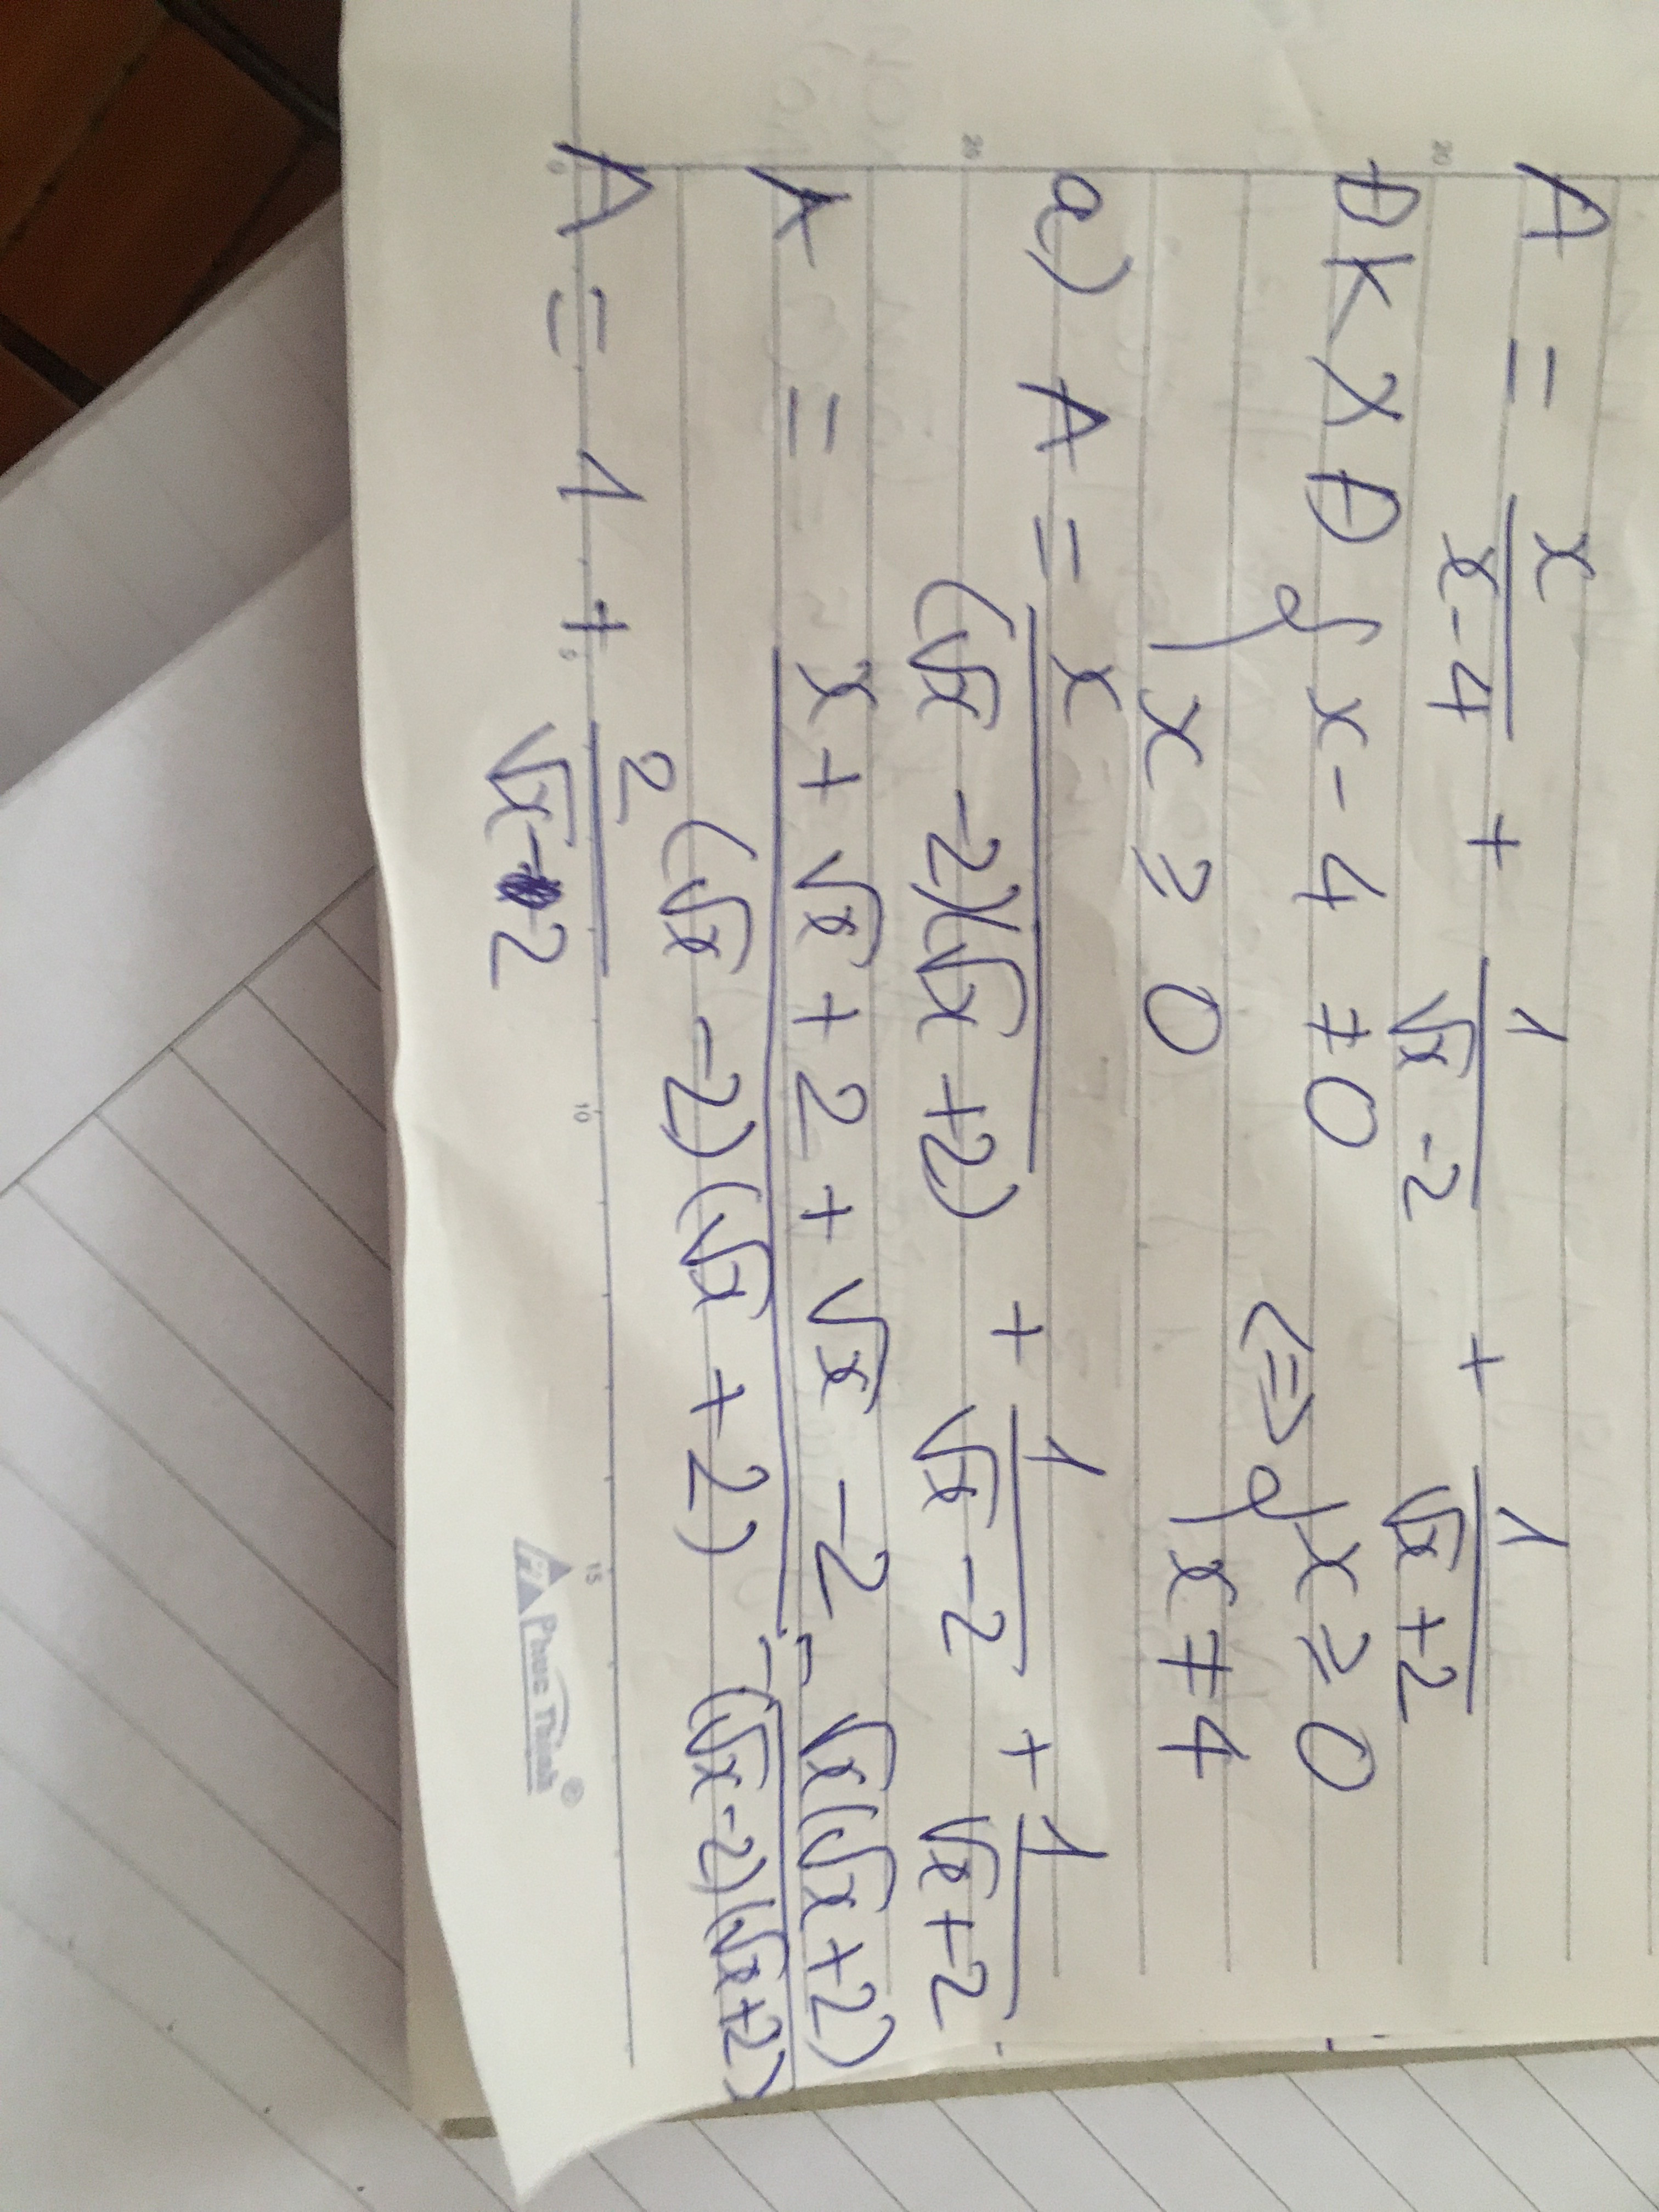 A = x/(x-4) + 1/(√x -2) + 1/(√x +2)
ĐKXĐ { x - 4 ≠ 0 <=> { x ≥ 0
{ x ≥ 0 { x ≠ 4
a) A = x/((√x -2)(√x +2)) + 1/(√x -2) + 1/(√x +2)
A = (x + √x + 2 + √x -2)/((√x -2)(√x +2)) = √x(√x+2)/((√x-2)(√x+2))
A = 1 + 2/(√x-2)
Phuc Thinh®
20
20
0
5
10
15